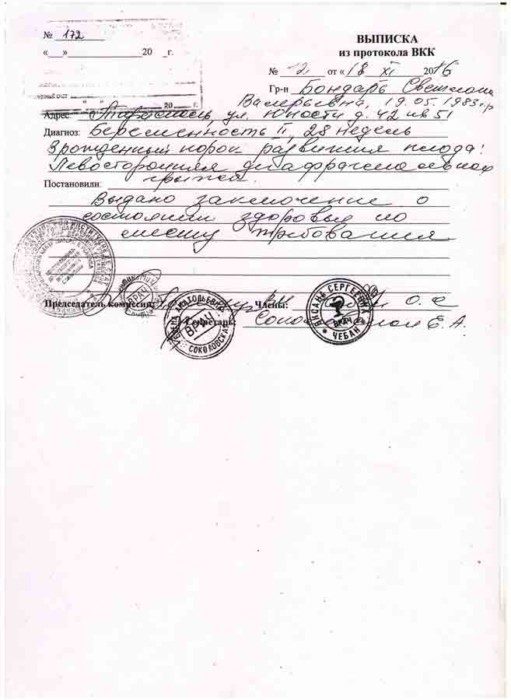 № 172
« » 20 _г.
ВЫПИСКА
из протокола ВКК
№ 12 от « 18 XI 2016
Гр-н Бондарь Светлана
Валерьевна, 19.05.1983 г.р
20 г.
Адрес: Тирасполь, ул. Юности д. 42 кв 51
Диагноз: Беременность II, 28 недель
Врожденный порок развития плода:
Левосторонняя диафрагмальная
грыжа.
Постановили:
Выдано заключение о
состоянии здоровья по
месту требования
Председатель комиссии: Члены: О. С
Секретарь: Е. А.
ВРАЧ
ВРАЧ
СОКОЛОВСКАЯ
ОКСАНА СЕРГЕЕВНА
ВРАЧ
ЧЕБАН